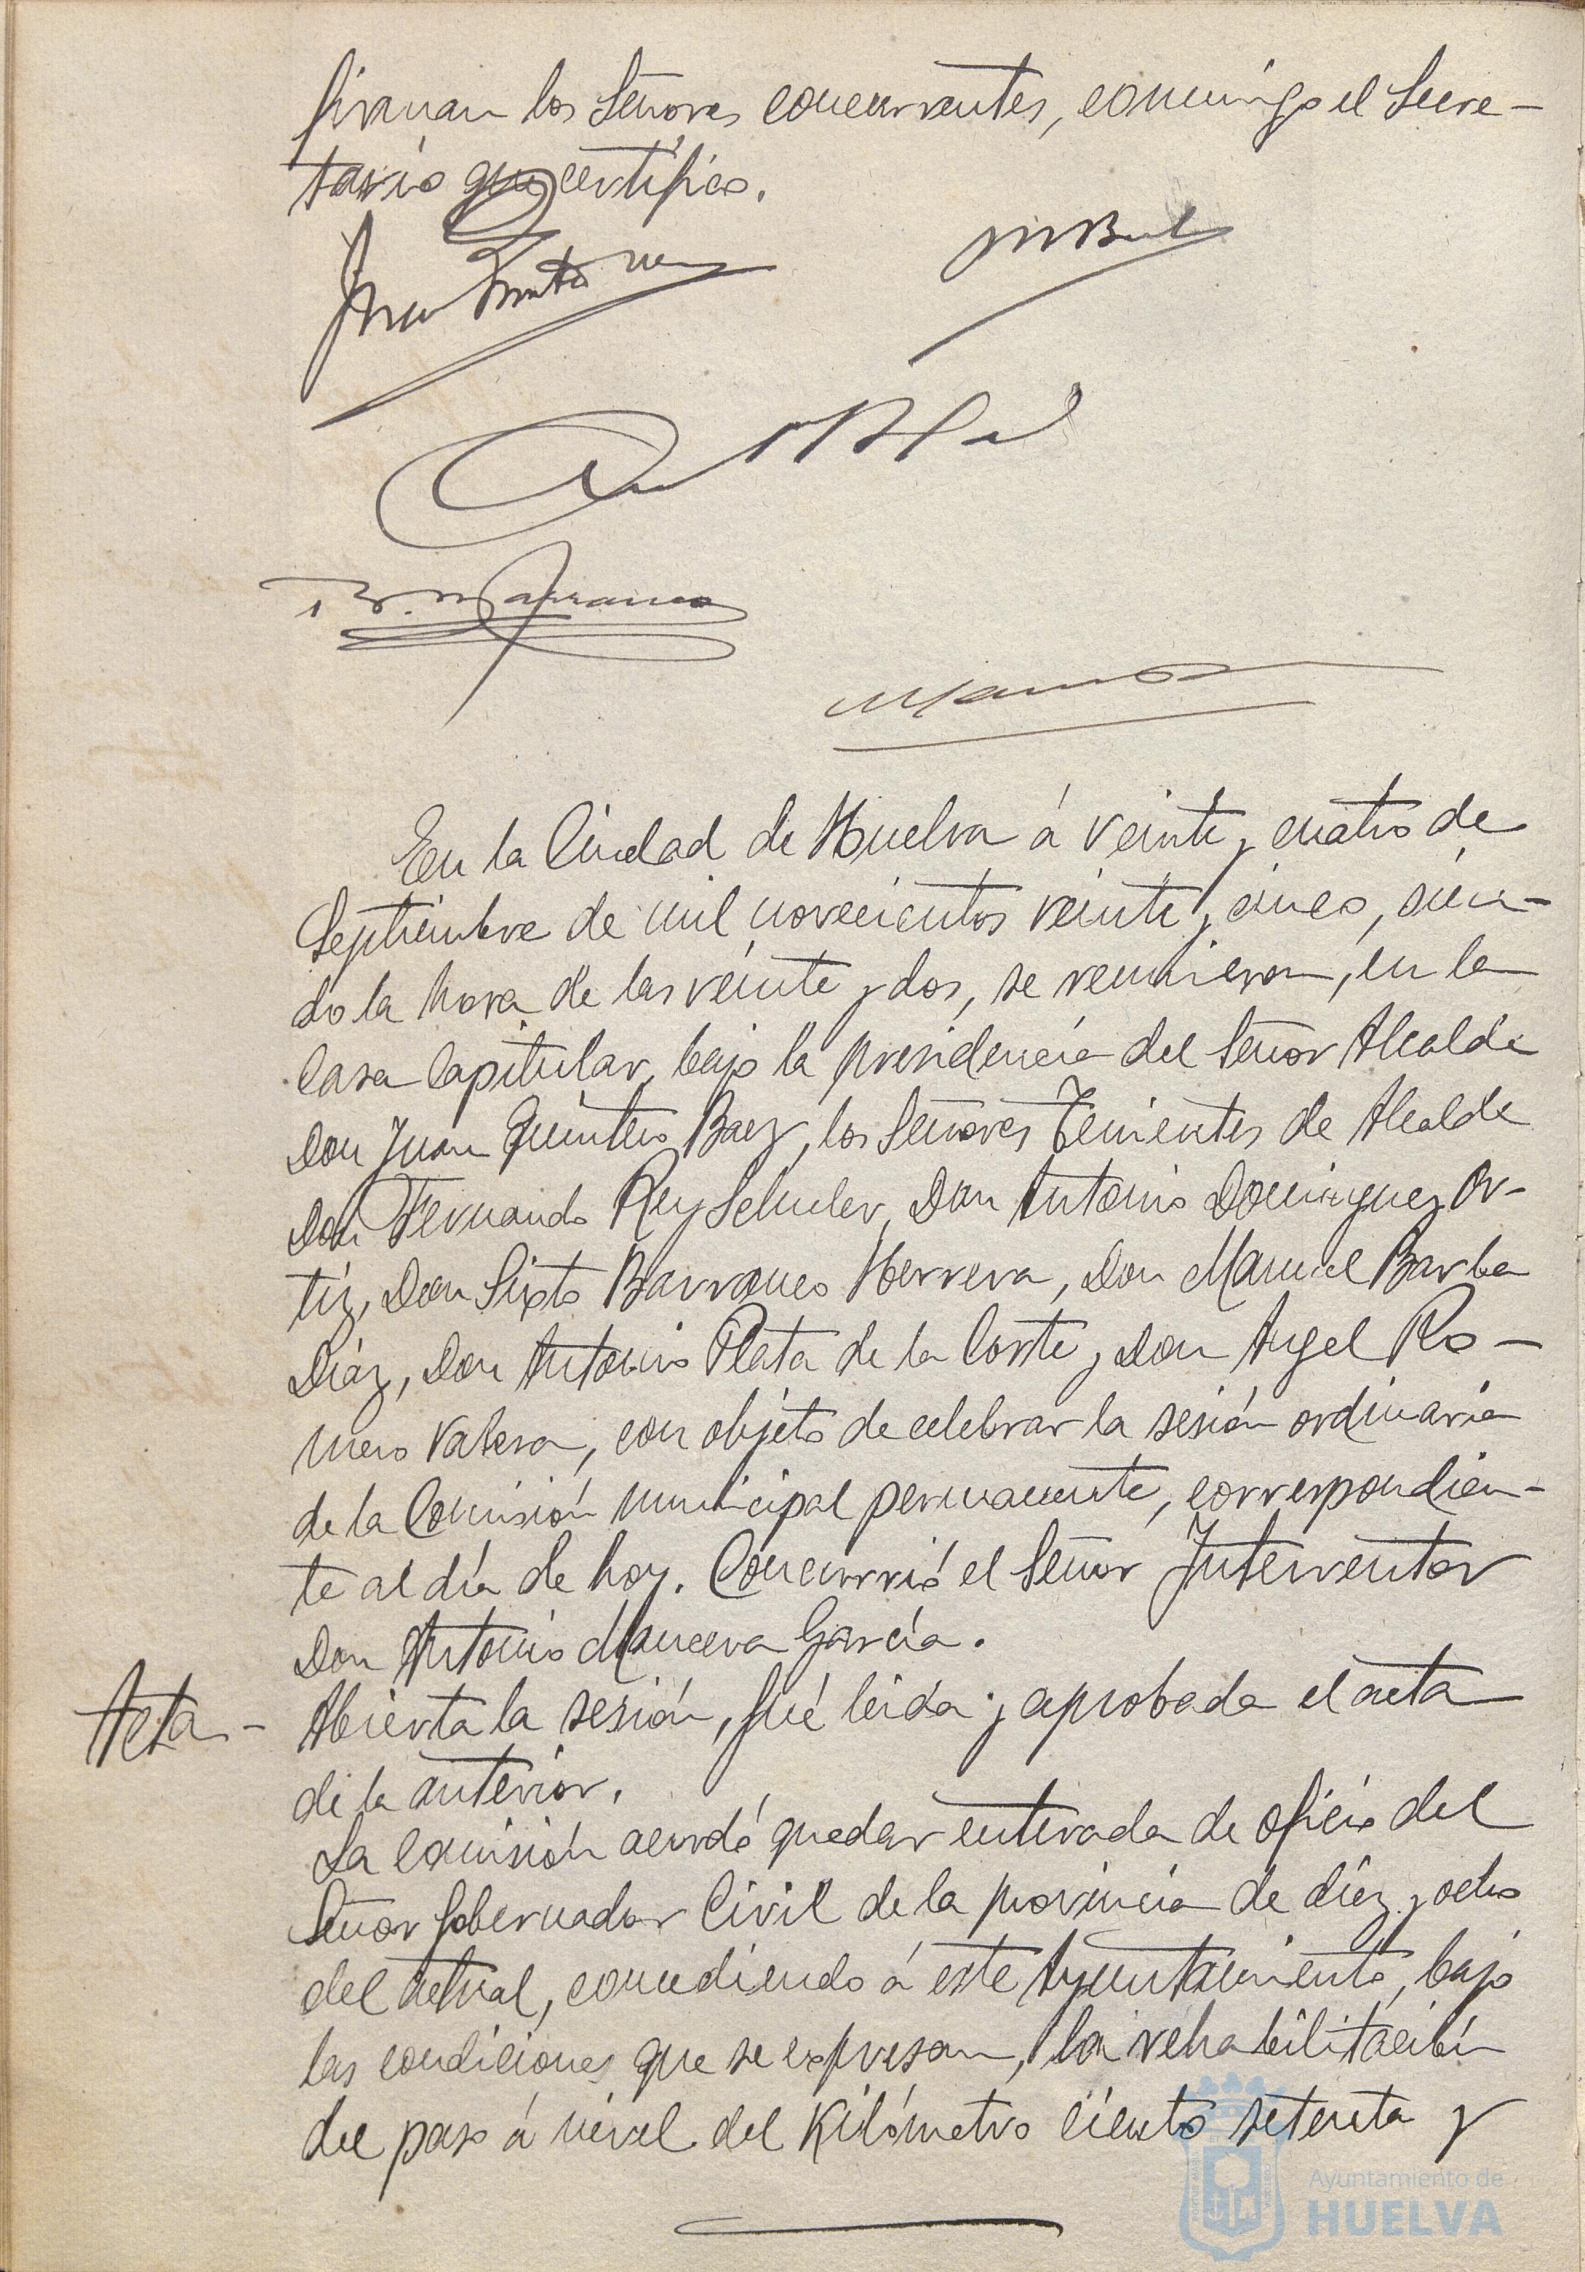 firman los Señores concurrentes, conmigo el Secre-
tario que certifico.
En la Ciudad de Huelva á veinte y cuatro de
Septiembre de mil novecientos veinte y cinco, sien-
do la hora de las veinte y dos, se reunieron, en la
Casa Capitular, bajo la presidencia del Señor Alcalde
Don Juan Quintero Baez, los Señores Tenientes de Alcalde
Don Fernando Rey Schuler, Don Antonio Dominguez Or-
tiz, Don Sixto Barranco Herrera, Don Manuel Barba
Díaz, Don Antonio Plata de la Corte y Don Angel Ro-
mero Valera, con objeto de celebrar la sesión ordinaria
de la Comisión municipal permanente, correspondien-
te al día de hoy. Concurrió el Señor Interventor
Don Antonio Mancera García.
Acta- Abierta la sesión, fué leida y aprobada el acta
de la anterior.
La comisión acordó quedar enterada de oficio del
Señor Gobernador Civil de la provincia de diez y ocho
del actual, concediendo á este Ayuntamiento, bajo
las condiciones que se expresan, la rehabilitación
del paso á nivel del Kilómetro ciento setenta y
Ayuntamiento de
HUELVA